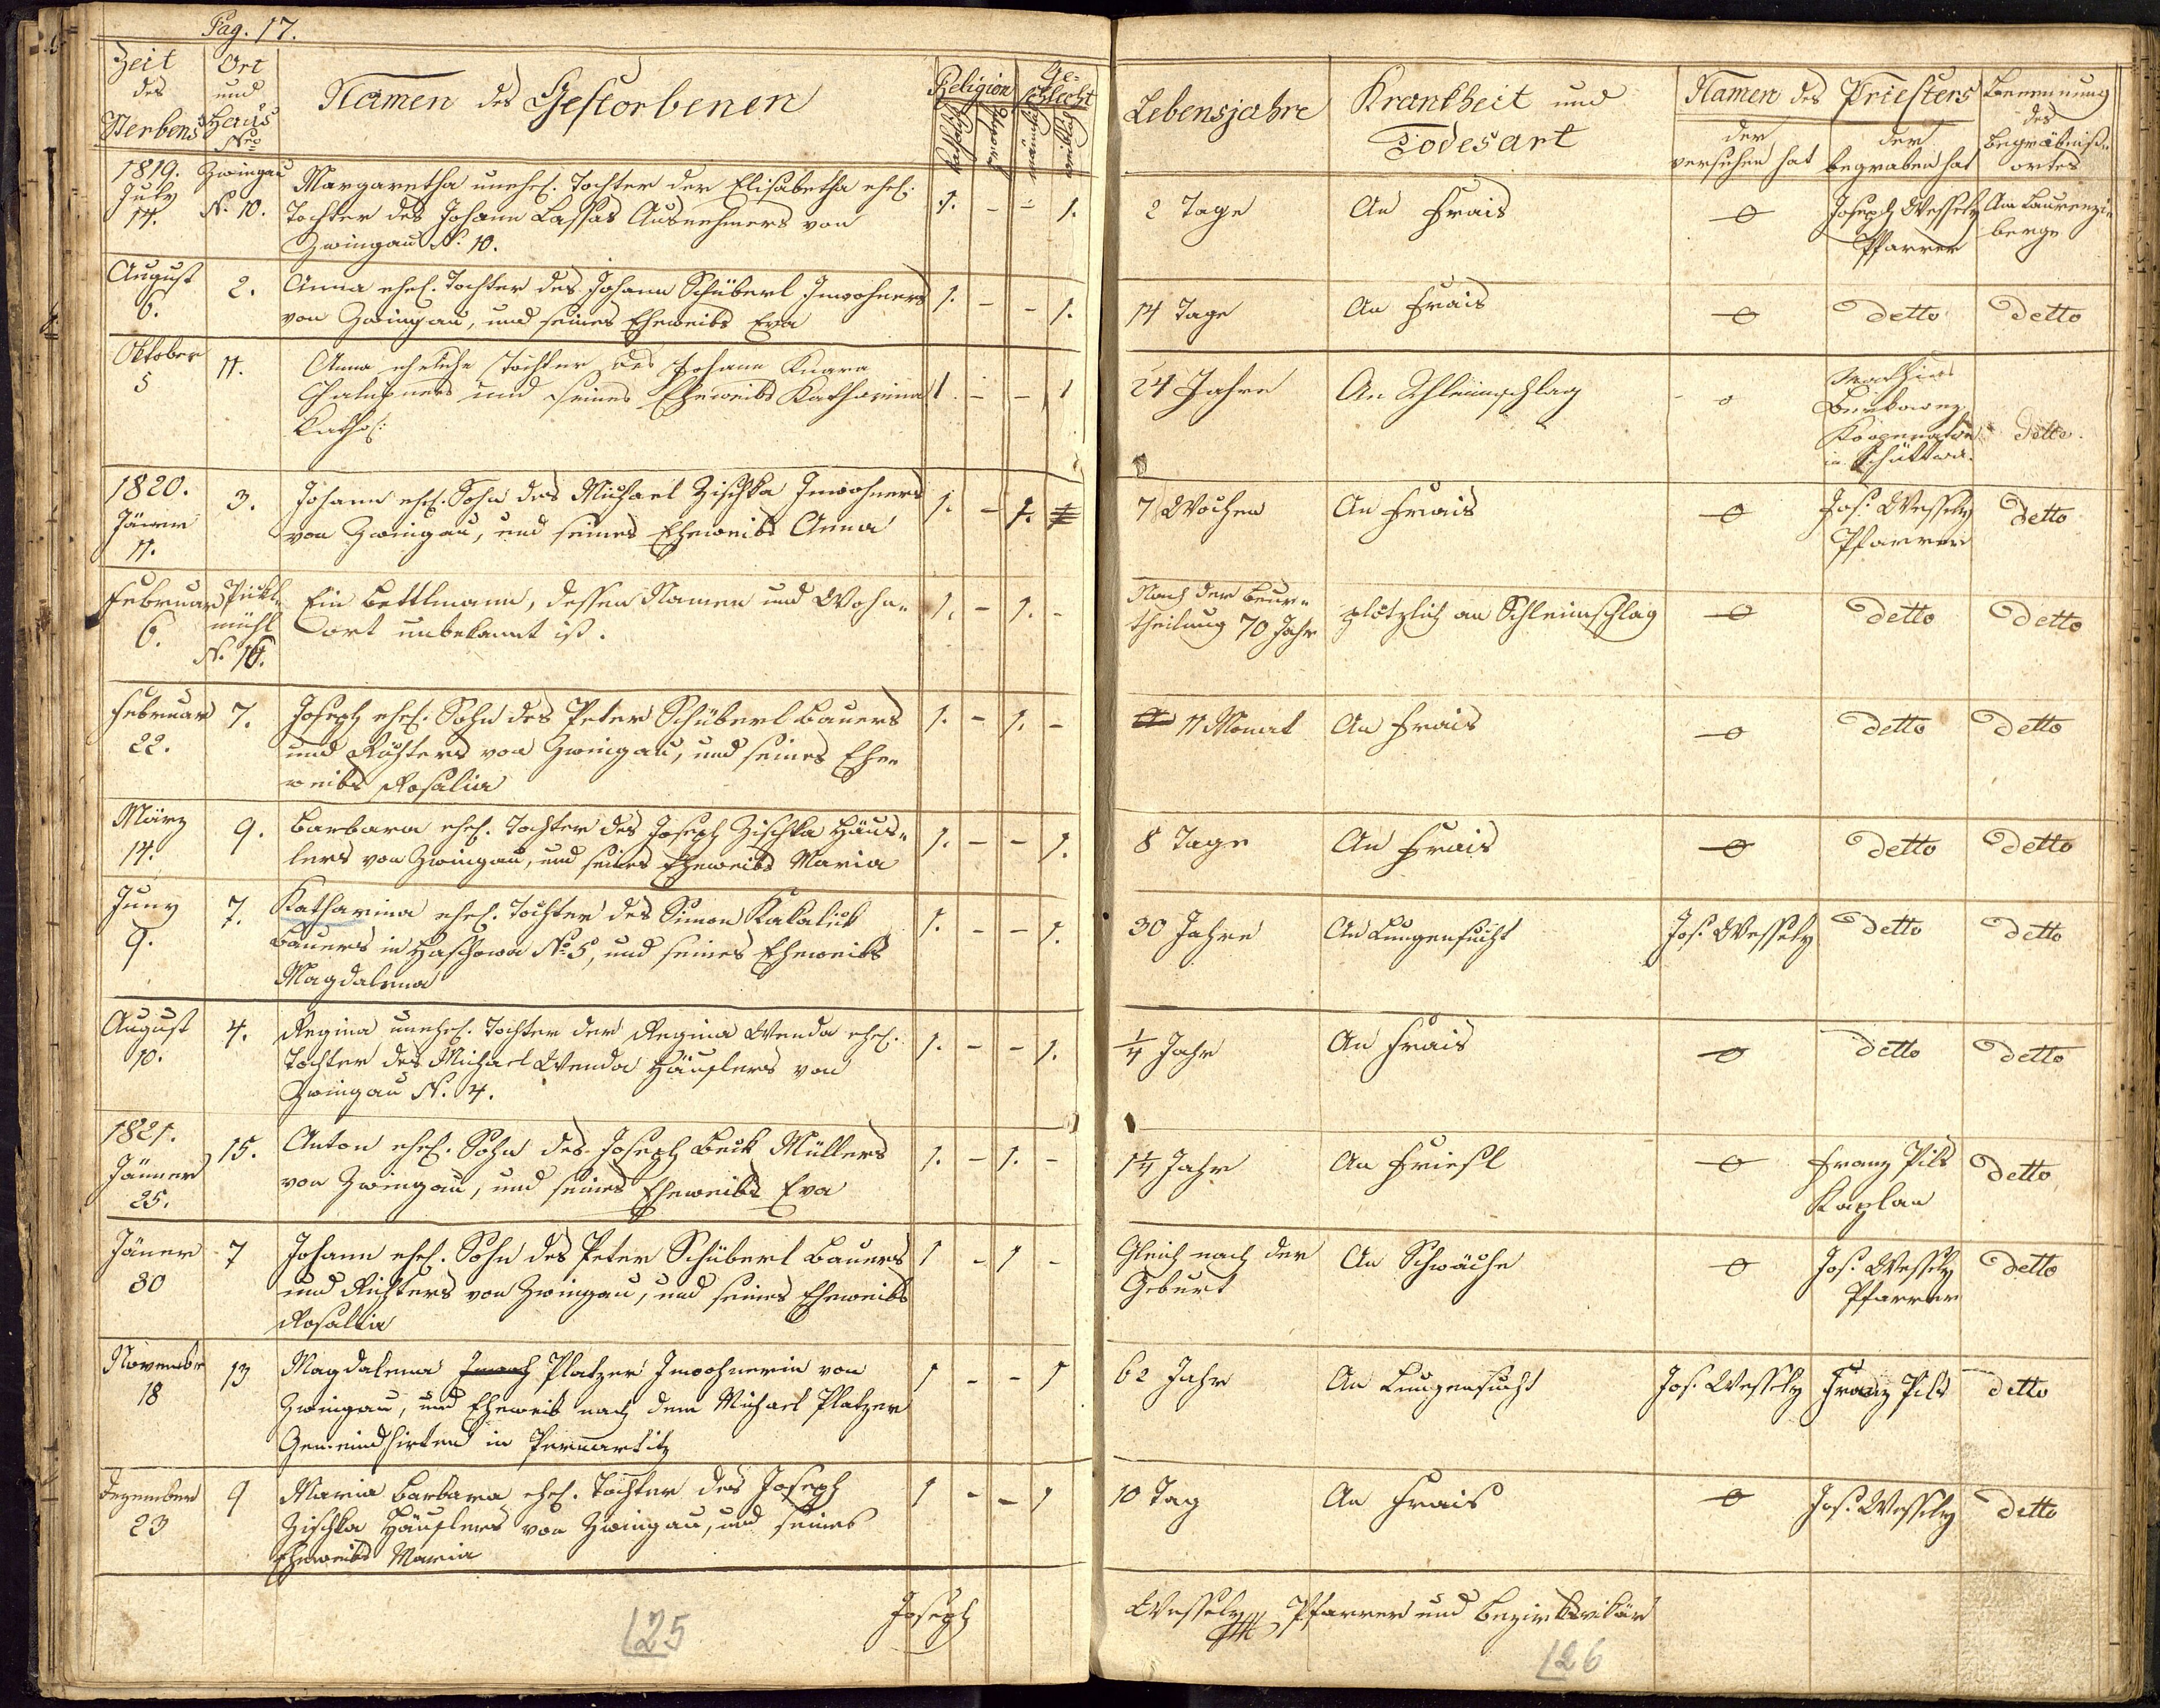 Pag. 17.
Zeit des Sterbens
Ort und Haus Nro
Namen des Gestorbenen
Religion
katholisch
protest.
Geschlecht
männlich
weiblich
1819. July 14.
Zwingau N. 10.
Margaretha unehel. Tochter der Elisabetha ehel.
Tochter des Johann Lassas Ausnehmers von
Zwingau N. 10.
1. - - 1.
August 6.
2.
Anna ehel. Tochter des Johann Schüberl Inwohners
von Zwingau, und seines Eheweibs Eva
1. - - 1.
Oktober 5
11.
Anna eheliche Tochter des Johann Knara
Chalupners und seines Eheweibs Katharina
kathol:
1. - - 1
1820. Jäner 11.
3.
Johann ehel. Sohn des Michael Zischka Inwohners
von Zwingau, und seines Eheweibs Anna
1. - 1.
Februar 6.
mühl N. 16.
Ein Bettlmann, dessen Namen und Wohn-
ort unbekannt ist.
1. - 1. -
Februar 22.
7.
Joseph ehel. Sohn des Peter Schüberl Bauers
und Richters von Zwingau, und seines Ehe-
weibs Rosalia
1. - 1. -
März 14.
9.
Barbara ehel. Tochter des Joseph Zischka Häus-
lers von Zwingau, und seines Eheweibs Maria
1. - - 1.
Juny 9.
7.
Katharina ehel. Tochter des Simon Kakalik
Bauers in Haschowa No 5, und seines Eheweibs
Magdalena
1. - - 1.
August 10.
4.
Regina unehel. Tochter der Regina Wenda ehel.
Tochter des Michael Wenda Häuslers von
Zwingau N. 4.
1. - - 1.
1821. Jänner 25.
15.
Anton ehel. Sohn des Joseph Beck Müllers
von Zwingau, und seines Eheweibs Eva
1. - 1. -
Jäner 30
7
Johann ehel. Sohn des Peter Schüberl Bauers
und Richters von Zwingau, und seines Eheweibs
Rosalia
1 - 1 -
November 18
13
Magdalena Platzer Inwohnerin von
Zwingau, und Eheweib nach dem Michael Platzer
Gemeindhirten in Pernartitz
1 - - 1
Dezember 23
9
Maria Barbara ehel. Tochter des Joseph
Zischka Häuslers von Zwingau, und seines
Eheweibs Maria
1 - - 1
Joseph
125
Lebensjahre
Krankheit und Todesart
Namen des Priesters
der versehen hat
der begraben hat
Benennung des Begräbniß-
ortes
2 Tage
An Frais
Joseph Wessely Pfarrer
Am Laurenzi-
berge
14 Tage
An Frais
detto
detto
24 Jahre
An Schleimschlag
Mathias
Kooperator
in Schüttwa.
detto.
7 Wochen
An Frais
Jos. Wessely
Pfarrer
detto
Nach der Beur-
theilung 70 Jahr
plötzlich an Schleimschlag
detto
detto
11 Monat
An Frais
detto
detto
8 Tage
An Frais
detto
detto
30 Jahre
An Lungensucht
Jos. Wessely
detto
detto
1/4 Jahr
An Frais
detto
detto
1 1/4 Jahr
An Friesl
Franz Pils
Kaplan
detto
Gleich nach der
Geburt
An Schwäche
Jos. Wessely
Pfarrer
detto
62 Jahr
An Lungensucht
Jos. Wessely
Franz Pils
detto
10 Tag
An Frais
Jos. Wessely
detto
Wessely Pfarrer und Bezirksvikär
126